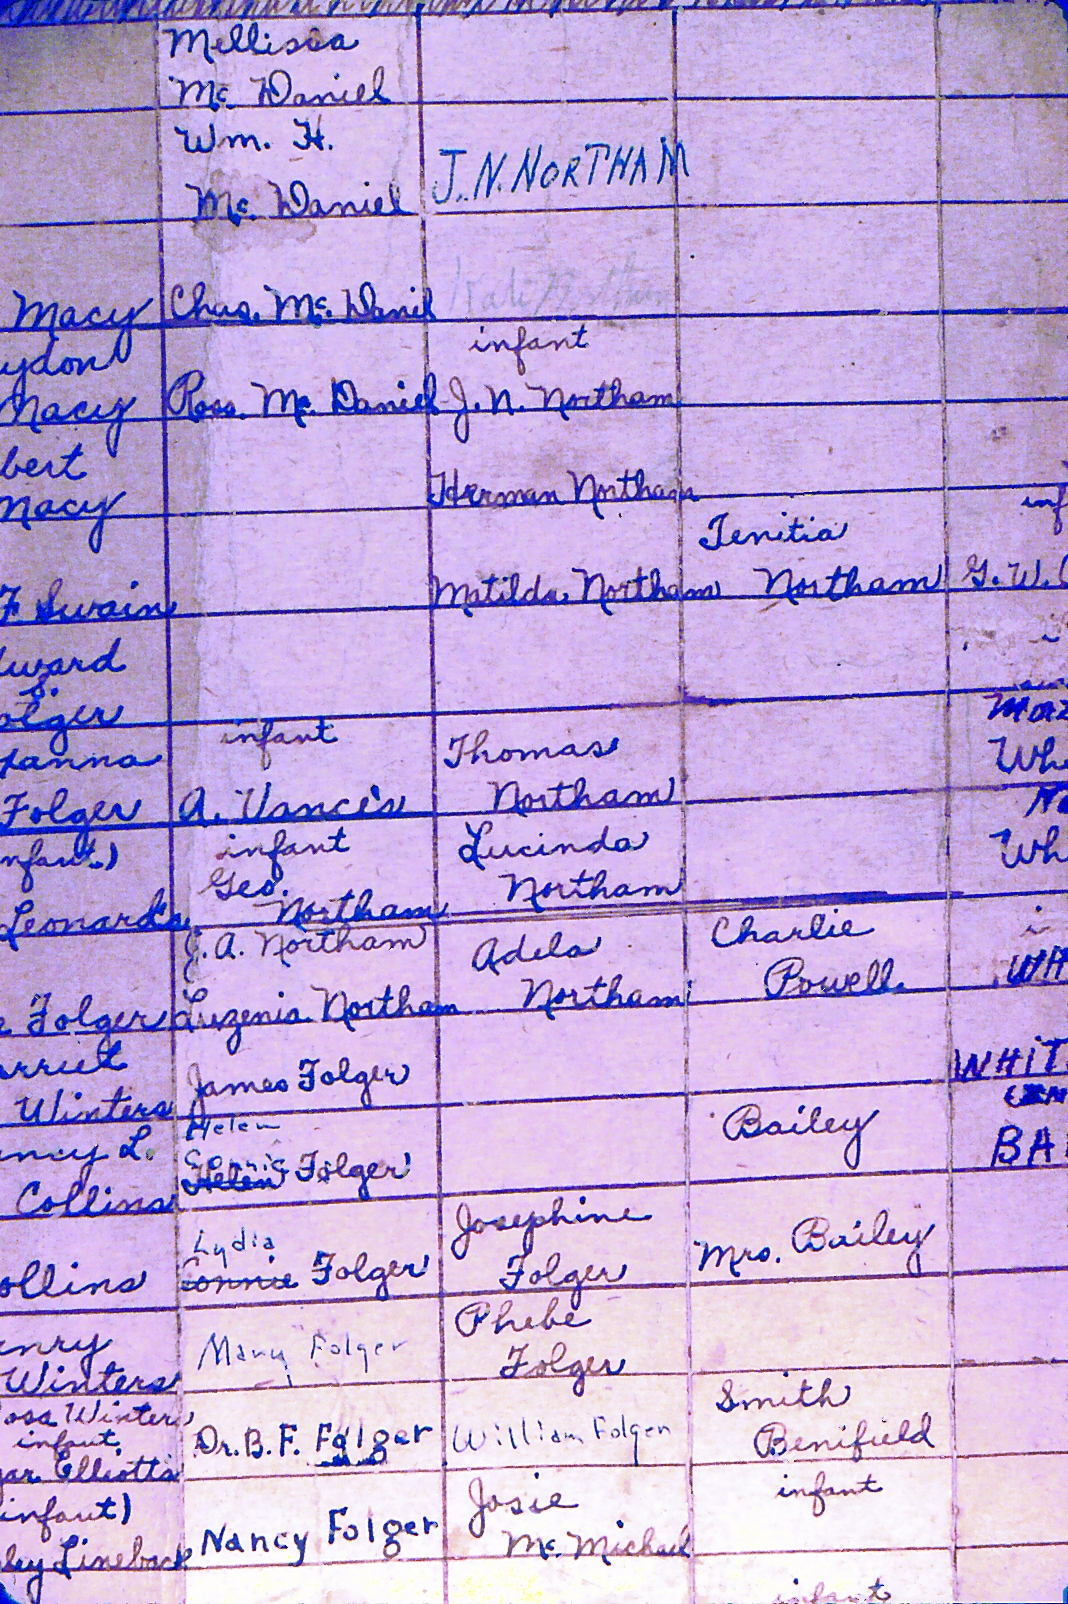 Mellissa
Mc Daniel
Wm. H.
Mc. Daniel
J. N. NORTHAM
Macy
Chas. Mc. Danil
infant
ydon
Macy
Ross. Mc. Daniel
J. N. Northam
bert
Macy
Herman Northam
inf
Tenitia
F. Swain
Matilda Northam
Northam
G. W.
ward
S.
olger
infant
Thomas
Northam
Wh
anna
Folger
A. Vance's
infant
Lucinda
Northam
Wh
nfant)
Geo.
Northam
Leonard's
J. A. Northam
Adela
Northam
Charlie
Powell.
WH
e Folger
Luzenia Northam
rriet
Winters
James Folger
WHIT
Helen
Connie
Helen Folger
Bailey
BA
ncy L.
Collins
Lydia
Connie Folger
Josephine
Folger
Mrs. Bailey
ollins
enry
Winters
Mary Folger
Phebe
Folger
oss Winters
infant
Dr. B. F. Folger
William Folger
Smith
Benifield
gar Elliott's
infant)
Nancy Folger
Josie
Mc. Michael
infant
ley Lineback
infant